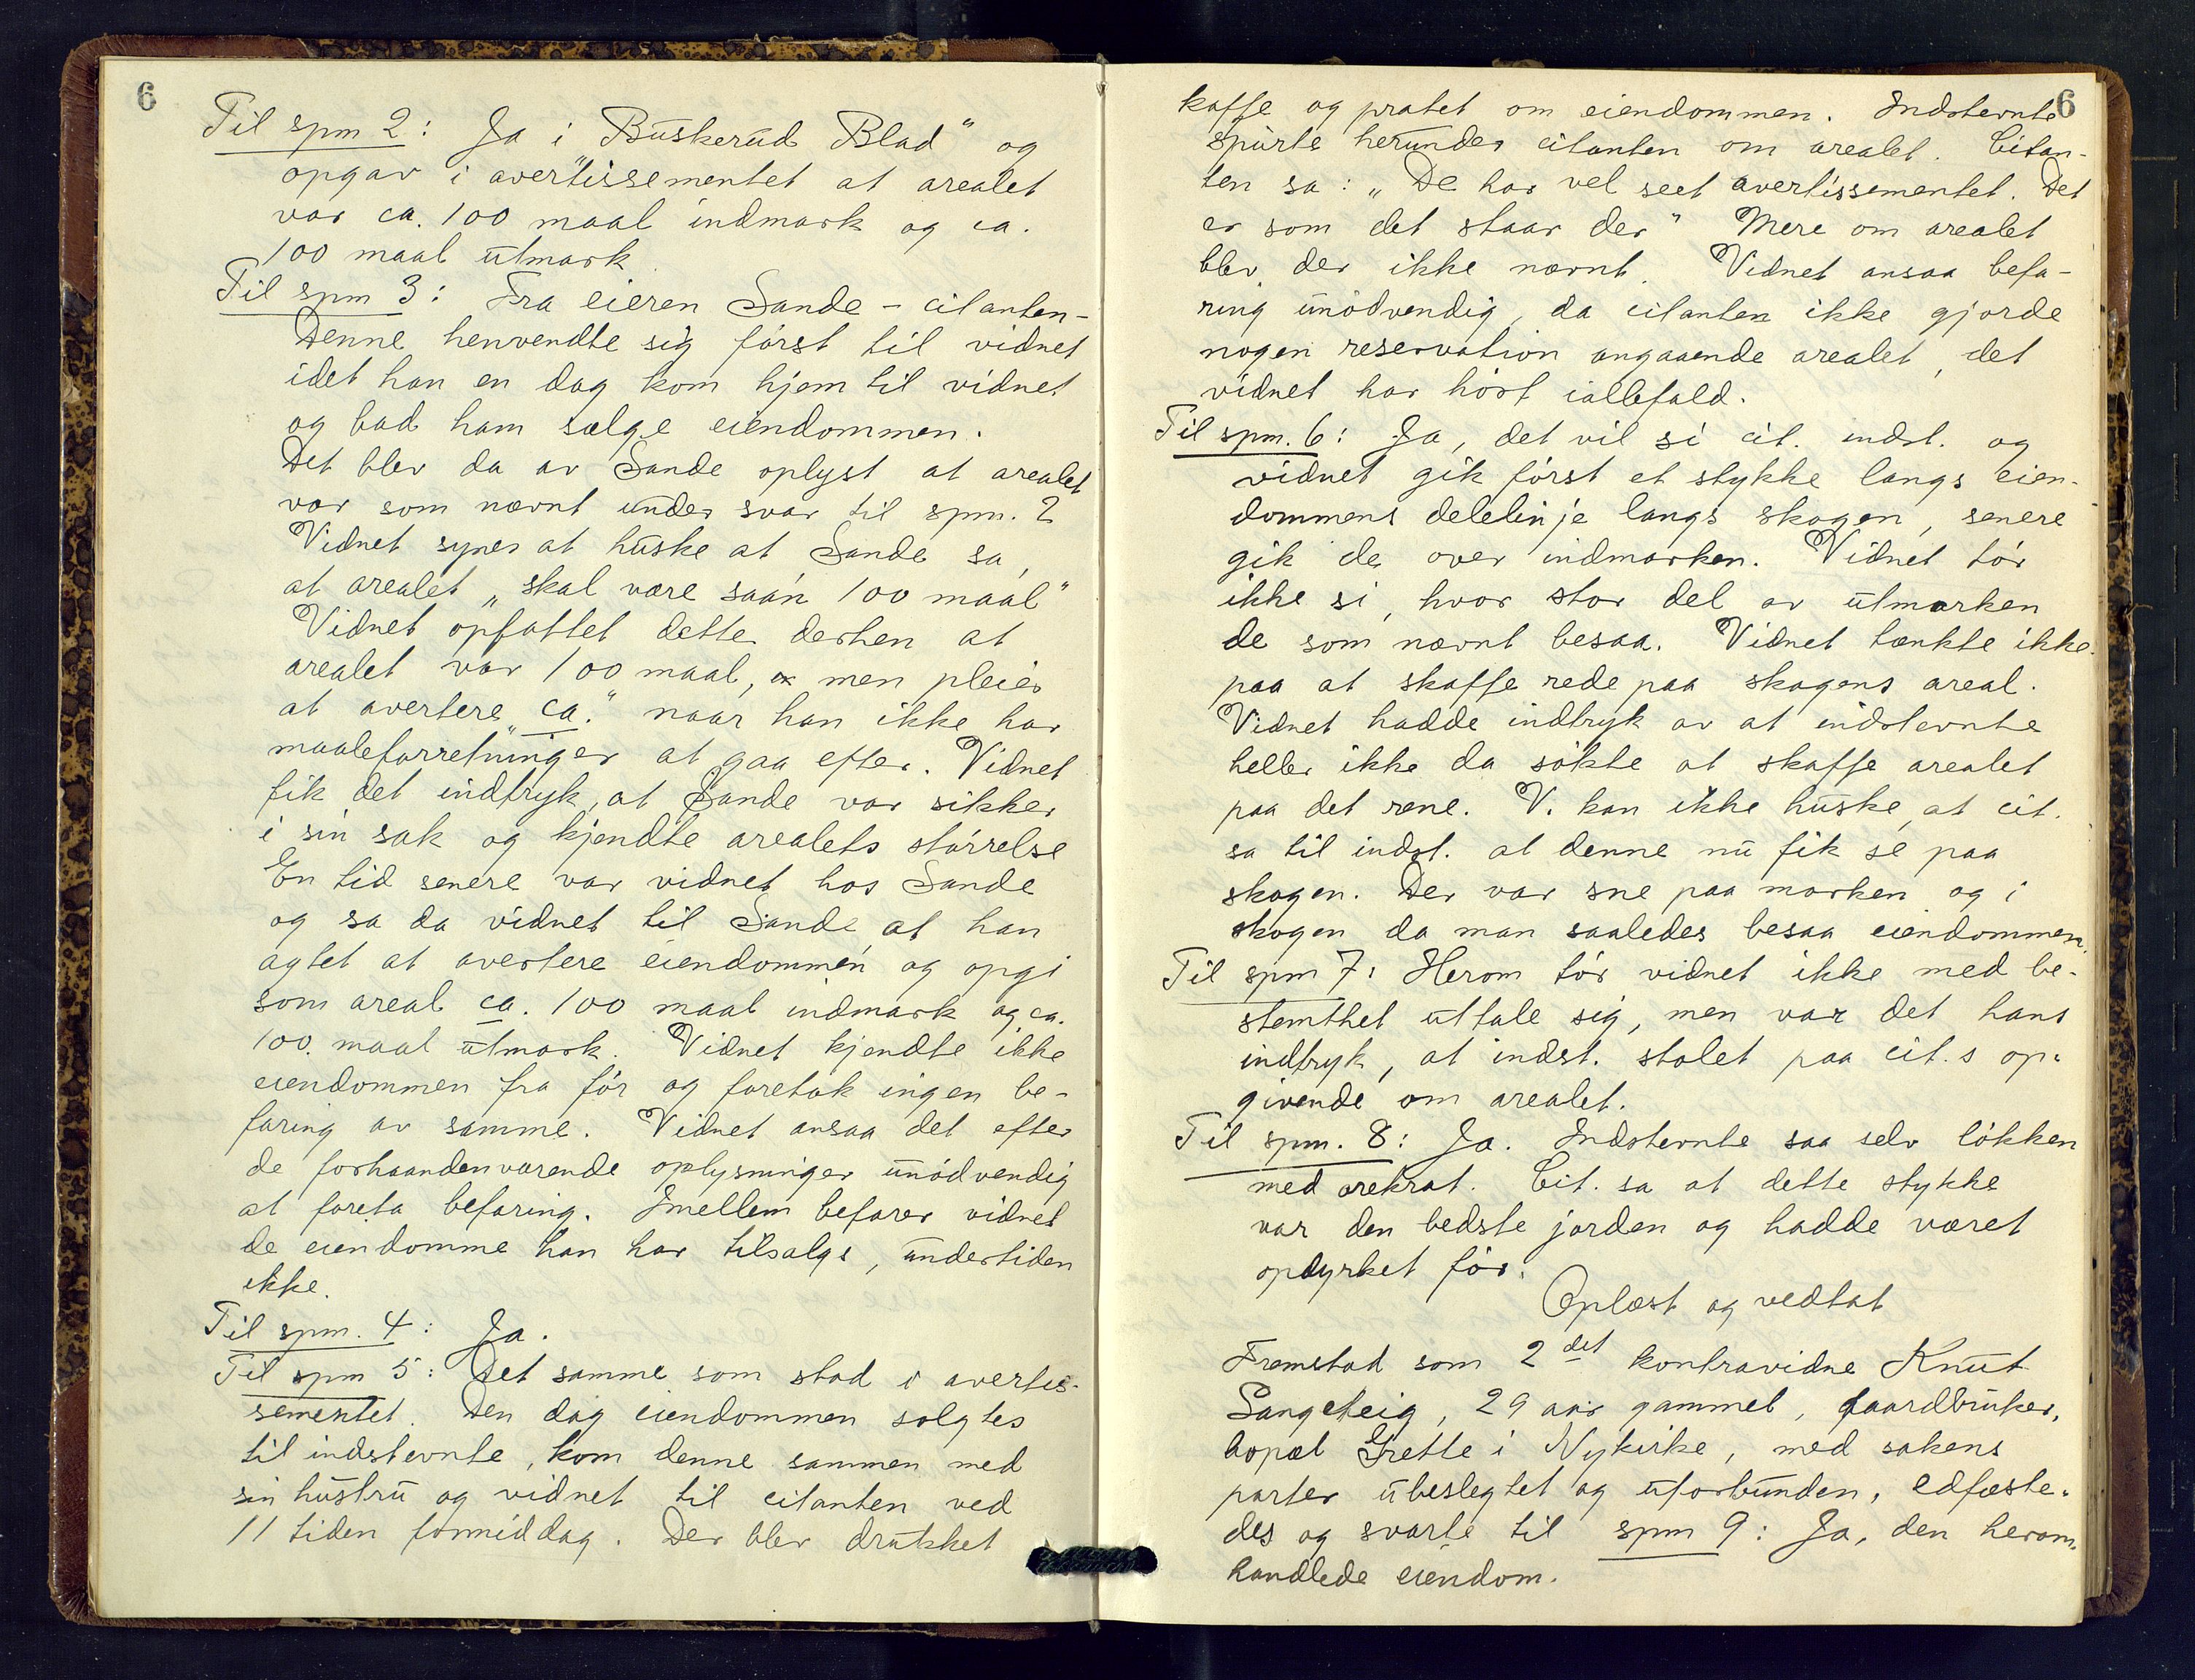 6
Til spm 2: Ja i "Buskerud Blad" og
opgav i avertissementet at arealet
var ca. 100 maal indmark og ca.
100 maal utmark
Til spm 3: Fra eieren Sande - citanten -
Denne henvendte sig først til vidnet
idet han en dag kom hjem til vidnet
og bad ham sælge eiendommen.
Det blev da av Sande oplyst at arealet
var som nævnt under svar til spm. 2
Vidnet synes at huske at Sande sa,
at arealet „skal være saan 100 maal"
Vidnet opfattet dette derhen at
arealet var 100 maal, men pleier
at avertere „ca." naar han ikke har
maaleforretninger at gaa efter. Vidnet
fik det indtryk, at Sande var sikker
i sin sak og kjendte arealets størrelse
En tid senere var vidnet hos Sande
og sa da vidnet til Sande, at han
agtet at avertere eiendommen og opgi
som areal ca. 100 maal indmark og ca.
100 maal utmark. Vidnet kjendte ikke
eiendommen fra før og foretok ingen be-
faring av samme. Vidnet ansaa det efter
de forhaandenværende oplysninger unødvendig
at foreta befaring. Imellem befarer vidnet
de eiendomme han har tilsalgs, undertiden
ikke.
Til spm. 4: Ja.
Til spm 5: Det samme som stod i avertis-
sementet. Den dag eiendommen solgtes
til indstevnte, kom denne sammen med
sin hustru og vidnet til citanten ved
11 tiden formiddag. Der blev drukket
6
kaffe og pratet om eiendommen. Indstevnte
spurte herunder citanten om arealet. Citan-
ten sa: „De har vel seet avertissementet. Det
er som det staar der" Mere om arealet
blev der ikke nævnt. Vidnet ansaa befa-
ring unødvendig, da citanten ikke gjorde
nogen reservation angaaende arealet, det
vidnet har hørt iallefald.
Til spm. 6: Ja, det vil si cit. indst. og
vidnet gik først et stykke langs eien-
dommens delelinje langs skogen, senere
gik de over indmarken. Vidnet tør
ikke si, hvor stor del av utmarken
de som nævnt besaa. Vidnet tænkte ikke
paa at skaffe rede paa skogens areal.
Vidnet hadde indtryk av at indstevnte
heller ikke da søkte at skaffe arealet
paa det rene. V. kan ikke huske, at cit.
sa til indst. at denne nu fik se paa
skogen. Der var sne paa marken og i
skogen da man saaledes besaa eiendommen.
Til spm 7: Herom tør vidnet ikke med be-
stemthet uttale sig, men var det hans
indtryk, at indst. stolet paa cit.s op-
givende om arealet.
Til spm. 8: Ja. Indstevnte saa selv løkken
med orekrat. Cit. sa at dette stykke
var den bedste jorden og hadde været
opdyrket før.
Oplæst og vedtat
Fremstod som 2det kontravidne Knut
Langeteig, 29 aar gammel, gaardbruker,
bopæl Grette i Nykirke, med sakens
parter ubeslegtet og uforbunden, edfæste-
des og svarte til spm 9: Ja, den herom-
handlede eiendom.